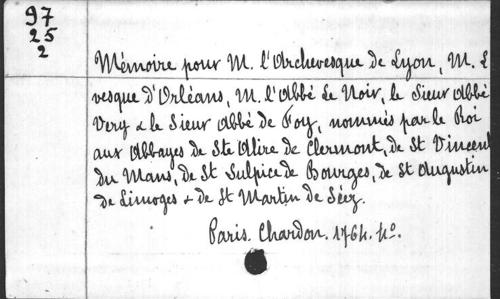 97
25
2
Mémoire pour M. l'Archevesque de Lyon, M. l
vesque d'Orléans, M. l'Abbé Le Noir, le Sieur Abbé
Very & le Sieur Abbé de Foy, nommés par le Roi
aux Abbayes de Ste Alire de Clermont, de St Vincent
du Mans, de St Sulpice de Bourges, de St Augustin
de Limoges & de St Martin de Séez.
Paris. Chardon. 1764. 4o.